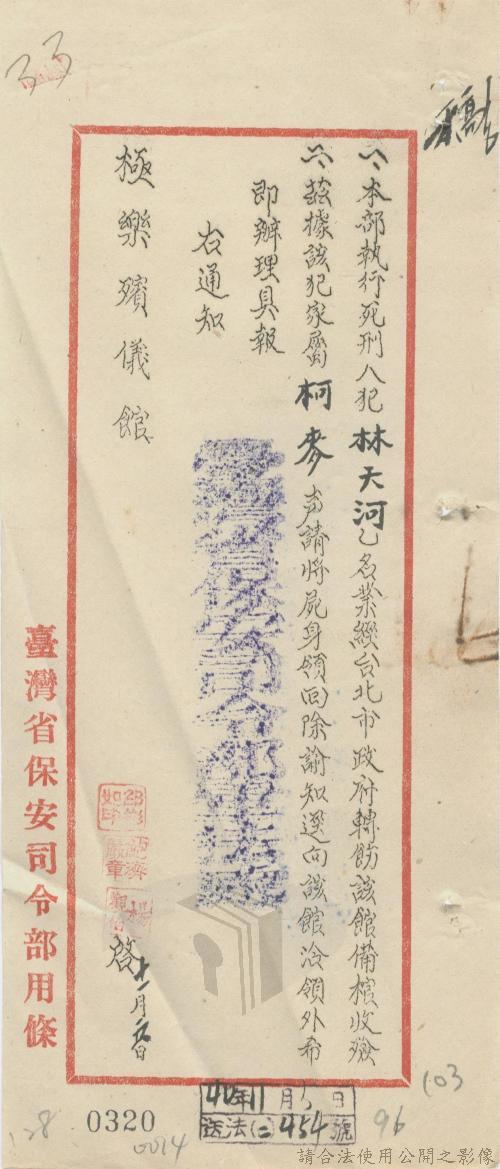 33
一、本部執行死刑人犯林天河乙名業經台北市政府轉飭該館備棺收殮
二、茲據該犯家屬柯麥声請將屍身領回除諭知逕向該館洽領外希
即辦理具報
右通知
極樂殯儀館
啓十一月 日
臺灣省保安司令部用條
40年11月5日
送法(二)454號
0320
0014
128
96
103
請合法使用公開之影像